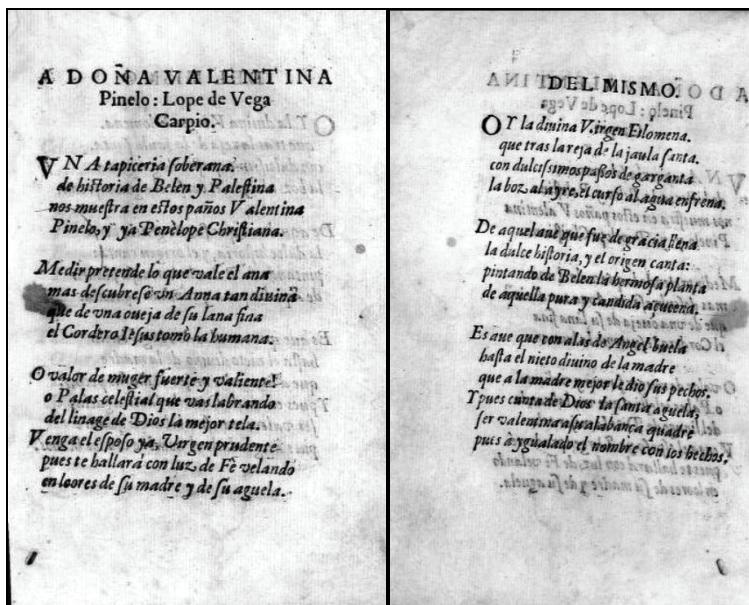 A DOÑA VALENTINA
Pinelo: Lope de Vega
Carpio.
VNA tapiceria soberana.
de historia de Belen y Palestina
nos muestra en estos paños Valentina
Pinelo, y ya Penelope Christiana.
Medir pretende lo que vale el ana
mas descubrese vn Anna tan diuina
que de vna oueja de su lana fina
el Cordero Iesus tomò la humana.
O valor de muger fuerte y valiente!
o Palas celestial que vas labrando
del linage de Dios la mejor tela.
Venga el esposo ya, Virgen prudente
pues te hallarà con luz de Fè velando
en loores de su madre y de su aguela.
DEL MISMO.
OY la diuina Virgen Filomena.
que tras la reja de la jaula santa.
con dulcissimos passos de garganta
la boz al ayre, el curso al agua enfrena.
De aquel aue que fue de gracia llena
la dulce historia, y el origen canta:
pintando de Belen la hermosa planta
de aquella pura y candida açucena.
Es aue que con alas de Angel buela
hasta el nieto diuino de la madre
que a la madre mejor le dio sus pechos.
Y pues cunta de Dios la santa aguela,
ser valentina a su alabança quadre
pues à ygualado el nombre con los hechos.